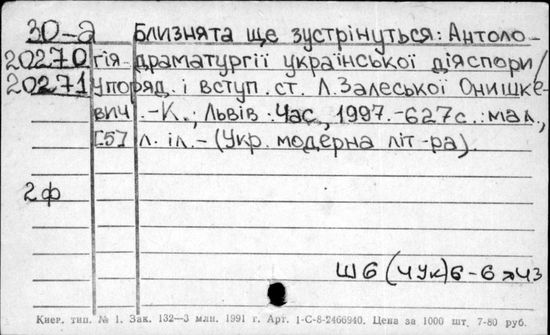 30-а Близнята ще зустрінуться: Антоло-
20270 гія драматургії української діяспори/
20271 Упоряд. і вступ. ст. Л.Залеської Онишке-
вич.-К.; Львів: Час, 1997.-627с.: мал.,
[57] л. іл.-(Укр. модерна літ-ра).
2ф
Ш6(4Ук)6-6я43
Киер. тип. № 1. Зак. 132—3 млн. 1991 г. Арт. 1-С-8-2466940. Цена за 1000 шт. 7-80 руб.